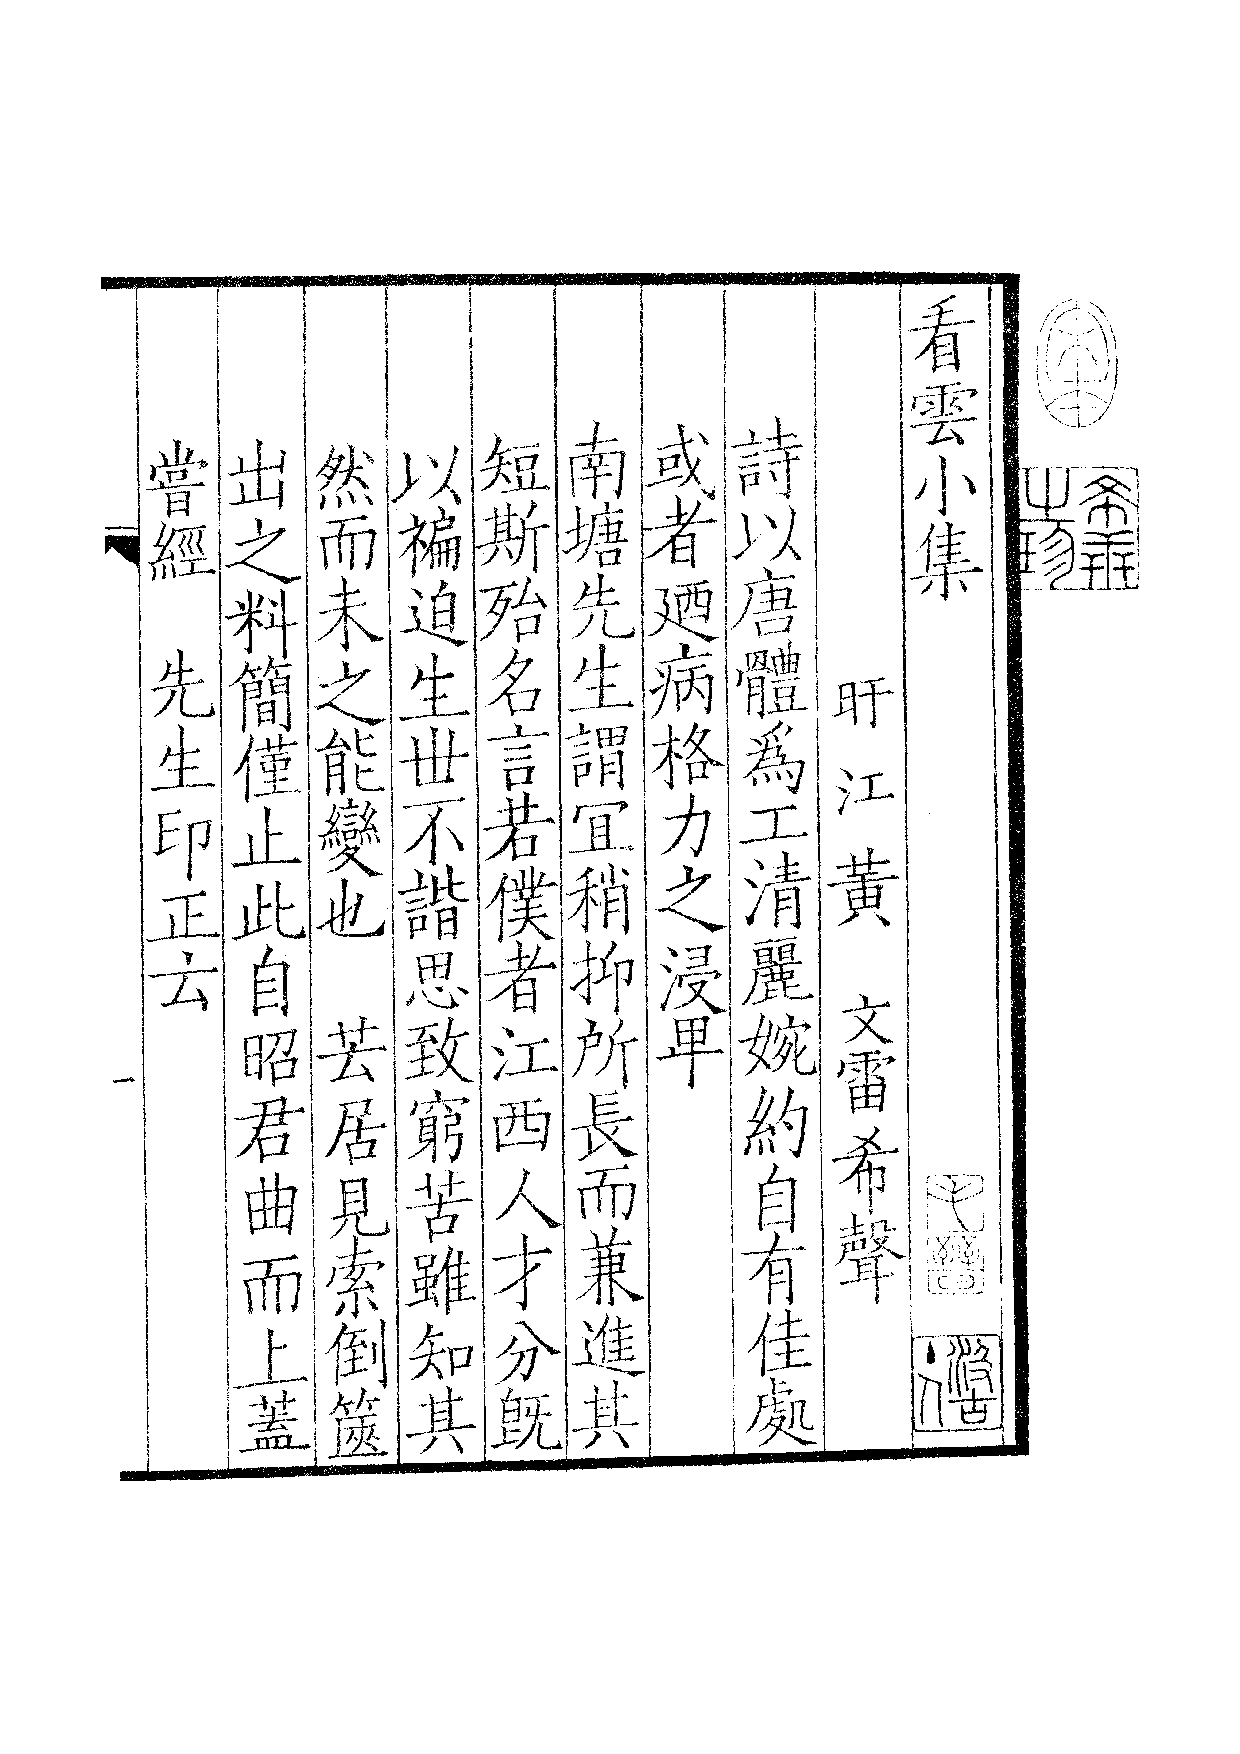 看雲小集
旴江黃文雷希聲
詩以唐體爲工清麗婉約自有佳處
或者廼病格力之浸卑
南塘先生謂冝稍抑所長而兼進其
短斯殆名言若僕者江西人才分旣
以褊迫生世不諧思致窮苦雖知其
然而未之能變也 芸居見索倒篋
出之料簡僅止此自昭君曲而上蓋
嘗經 先生印正云
一
希世之珍